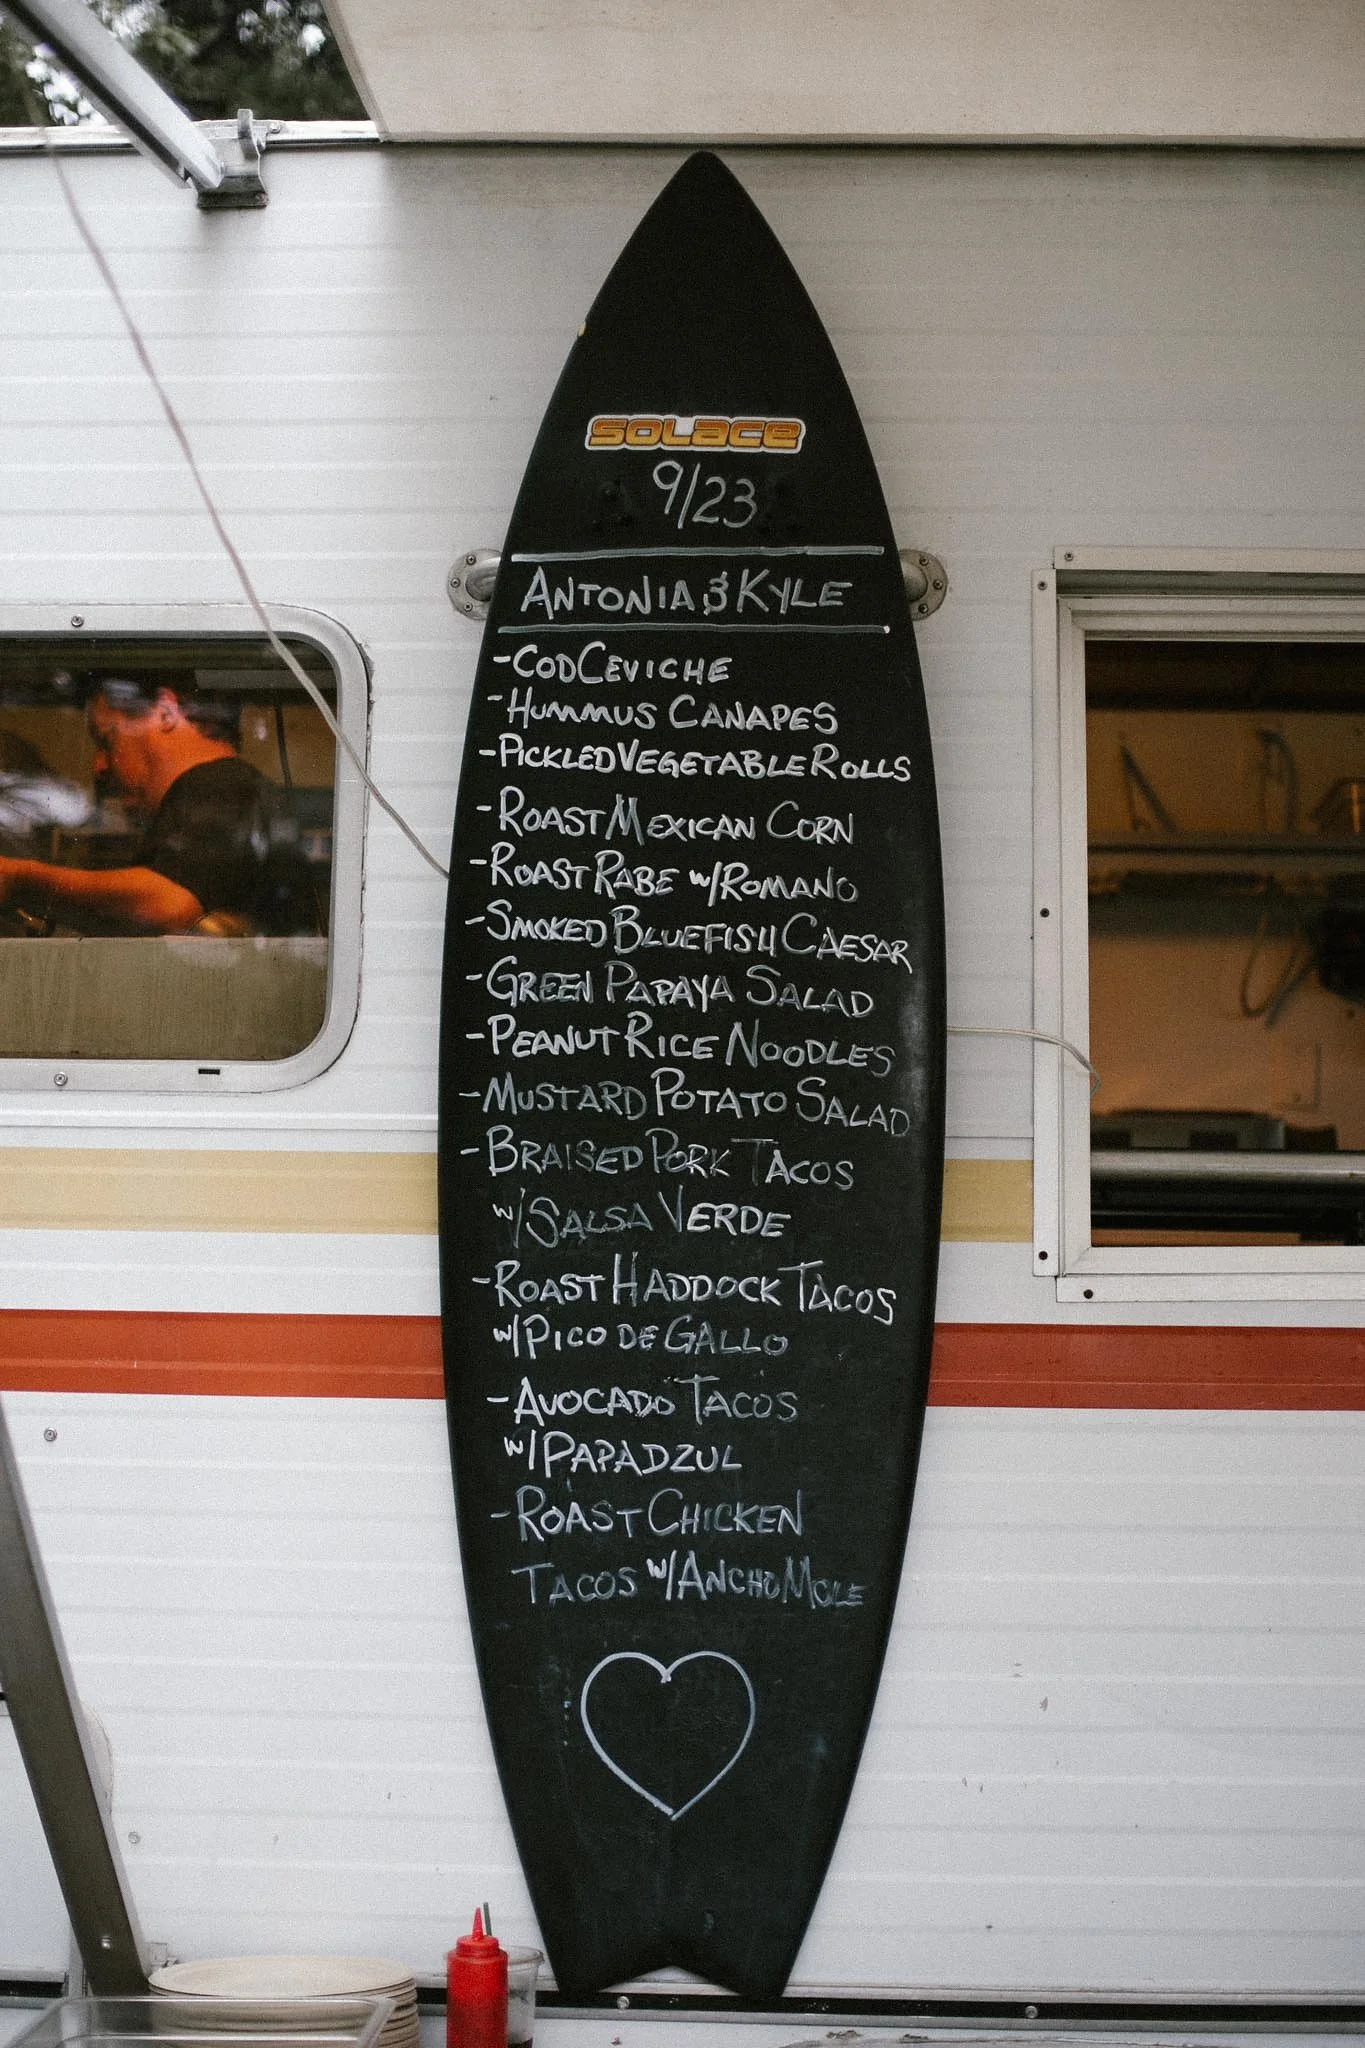 SOLACE
9/23
ANTONIA & KYLE
- COD CEVICHE
- HUMMUS CANAPES
- PICKLED VEGETABLE ROLLS
- ROAST MEXICAN CORN
- ROAST RABE w/ ROMANO
- SMOKED BLUEFISH CAESAR
- GREEN PAPAYA SALAD
- PEANUT RICE NOODLES
- MUSTARD POTATO SALAD
- BRAISED PORK TACOS
w/ SALSA VERDE
- ROAST HADDOCK TACOS
w/ PICO DE GALLO
- AVOCADO TACOS
w/ PAPADZUL
- ROAST CHICKEN
TACOS w/ ANCHO MOLE